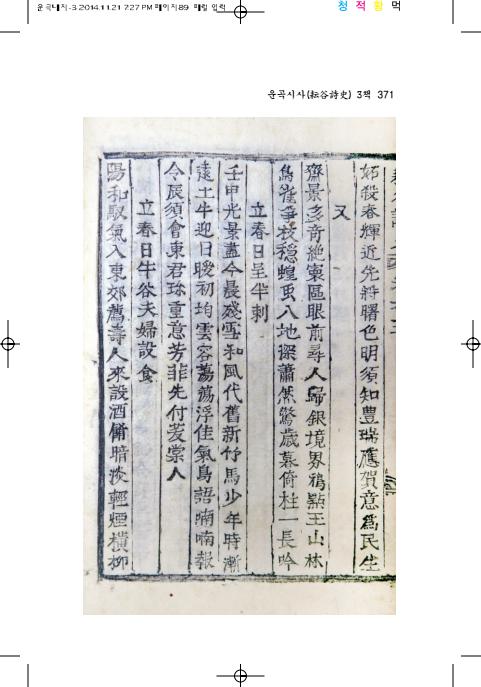 운곡대지-3 2014.11.21 7:27 PM 페이지89
청 적 황 먹
운곡시사(耘谷詩史) 3책 371
妬殺春輝近先斜曙色明須知豊瑞應賀意爲民生
又
齋景多奇絶寰區眼前尋人歸銀境界鴉點玉山林
鳥雀爭枝穩蝗虫入地深蕭然驚歲暮倚柱一長吟
立春日呈半刺
壬申光景盡今晨殘雪和風代舊新竹馬少年時漸
遠土牛迎日暖初均雲容蕩蕩浮佳氣鳥語喃喃報
令辰須會東君珎重意芳菲先付愛棠人
立春日牛谷夫婦設食
陽和馭氣入東郊薦壽人來設酒餚暗淡輕煙橫柳